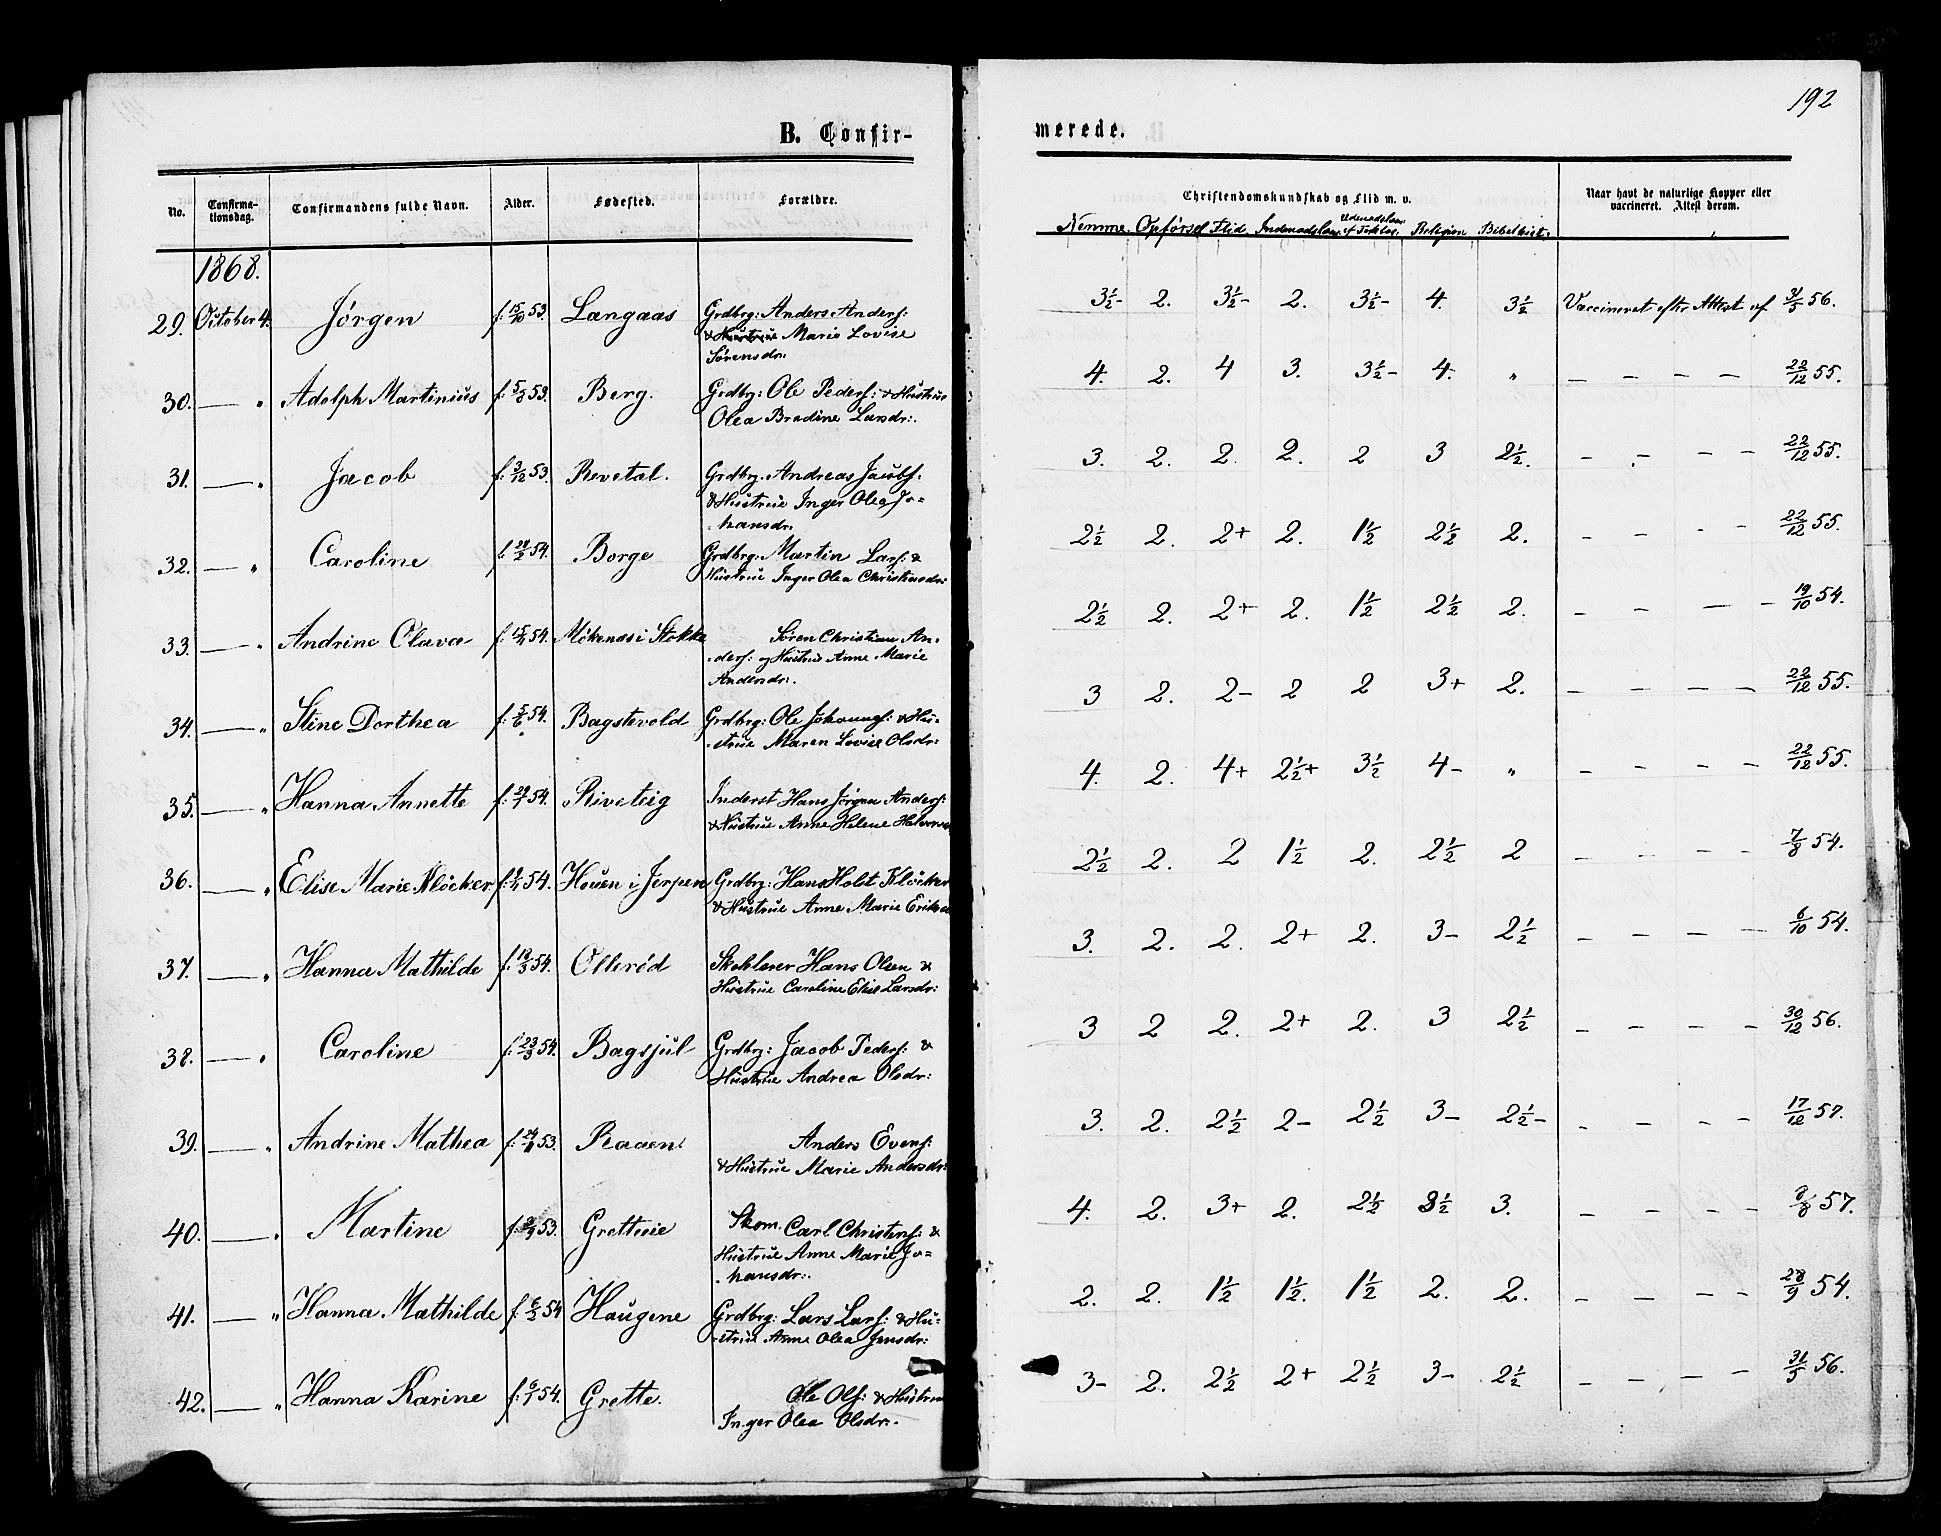 192
B. Confir-
merede.
No.
Confirma-
tionsdag.
Confirmandens fulde Navn.
Alder.
Fødested.
Forældre.
Christendomskundskab og Flid m. v.
Nemme. Opførsel Flid. Indenadslæs. Udenadslæs. af Textlæs. Religion Bibelhist.
Naar havt de naturlige Kopper eller
vaccineret. Attest derom.
1868.
29. October 4. Jørgen f: 15/10 53. Langaas Grdbrg: Anders Anders:
& Hustrue Marie Lovise
Sørensdr:
3½- 2. 3½- 2. 3½- 4. 3½ Vaccineret efter Attest af 56.
30. — " Adolph Martinius 53. Berg. Grdbrg: Ole Peders: & Hustrue
Olea Bredine Larsdr:
4. 2. 4 3. 3½- 4. " — — — — 22/12 55.
31. — " Jacob f: 3/12 53. Revetal. Grdbrg. Andreas Jacobs:
& Hustrue Inger Olea Jo-
hansdr:
3. 2. 2. 2. 2 3 2½. — — — — 22/12 55.
32. — " Caroline 54. Borge Grdbrg: Martin Lars: &
Hustrue Inger Olea Christiansdr:
2½ 2. 2+ 2. 1½ 2½ 2. — — — — 22/12 55.
33. — " Andrine Olava 54. Møkenæs i Stokke Søren Christian An-
ders: og Hustrue Anne Marie
Andersdr:
2½ 2. 2+ 2. 1½ 2½ 2. — — — — 19/10 54.
34. — " Stine Dorthea f: 5/6 54. Bagstevold Grdbrg: Ole Johannes: & Hu-
strue Maren Lovise Olsdr:
3 2. 2- 2 2 3+ 2. — — — — 22/12 55.
35. — " Hanna Annette 54. Riveteig Inderst Hans Jørgen Anders:
& Hustrue Anne Helene
4. 2. 4+ 2½+ 3½ 4- " — — — — 22/12 55.
36. — " Elise Marie Kløcker 54. Houen i Jerpen Grdbrg: Hans Holst Kløcker
& Hustrue Anne Marie
2½ 2. 2 1½ 2. 2½ 2 — — — — 7/8 54.
37. — " Hanna Mathilde f: 18/3 54. Ollerød Skolelærer Hans Olsen &
Hustrue Caroline Elise Larsdr:
3. 2. 2. 2+ 2. 3- 2½ — — — — 6/10 54.
38. — " Caroline f: 23/3 54. Bagsjul Grdbrg: Jacob Peders: &
Hustrue Andrea Olsdr:
3 2 2. 2+ 2. 3 2½ — — — — 30/12 56.
39. — " Andrine Mathea 53. Raaen Anders Evens:
& Hustrue Marie Andersdr:
3. 2. 2½ 2- 2½ 3- 2½- — — — — 17/12 57.
40. — " Martine 53. Grettvie Skom. Carl Christens: &
Hustrue Anne Marie Jo-
hansdr:
4. 2. 3+ 2. 2½ 3½ 3. — — — — 57.
41. — " Hanna Mathilde f: 6/2 54 Haugene Grdbrg: Lars Lars: & Hu-
strue Anne Olea Jensdr:
2. 2. 1½ 1½. 1½ 2. 2. — — — — 28/9 54.
42. — " Hanna Karine f: 6/1 54. Grette. Ole Ols: & Hustrue
Inger Olea Olsdr:
3- 2. 2½ 2+ 2½ 3- 2½ — — — — 31/5 56.